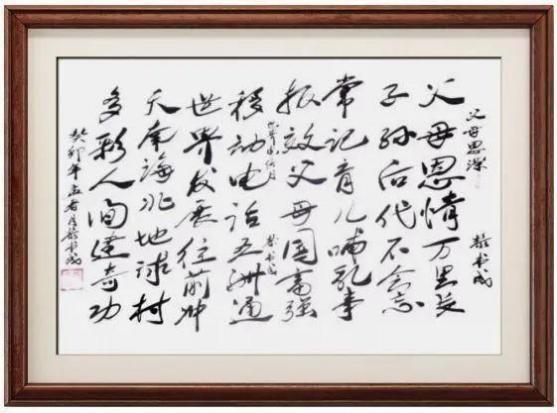 父母恩深
父母恩情万里长
子孙后代不会忘
常记育儿哺乳事
报效父母国富强
移动电话五洲通
世界发展往前冲
天南海北地球村
多彩人间建奇功
癸卯年 书成